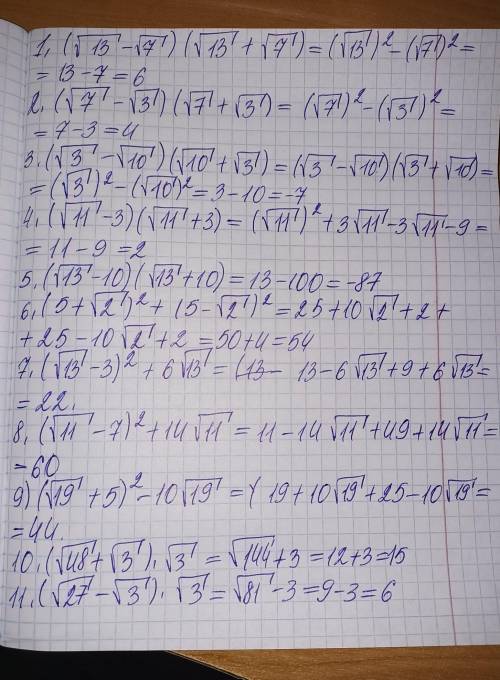 1, (√13 - √7) (√13 + √7) = (√13)² - (√7)² =
= 13 - 7 = 6
2, (√7 - √3) (√7 + √3) = (√7)² - (√3)² =
= 7 - 3 = 4
3. (√3 - √10) (√10 + √3) = (√3 - √10) (√3 + √10) =
= (√3)² - (√10)² = 3 - 10 = -7
4, (√11 - 3) (√11 + 3) = (√11)² + 3√11 - 3√11 - 9 =
= 11 - 9 = 2
5. (√13 - 10) (√13 + 10) = 13 - 100 = -87
6, (5 + √2)² + (5 - √2)² = 25 + 10√2 + 2 +
+ 25 - 10√2 + 2 = 50 + 4 = 54
7, (√13 - 3)² + 6√13 = (13 - 13 - 6√13 + 9 + 6√13 =
= 22.
8, (√11 - 7)² + 14√11 = 11 - 14√11 + 49 + 14√11 =
= 60
9) (√19 + 5)² - 10√19 = ( 19 + 10√19 + 25 - 10√19 =
= 44.
10, (√48 + √3) · √3 = √144 + 3 = 12 + 3 = 15
11, (√27 - √3) · √3 = √81 - 3 = 9 - 3 = 6